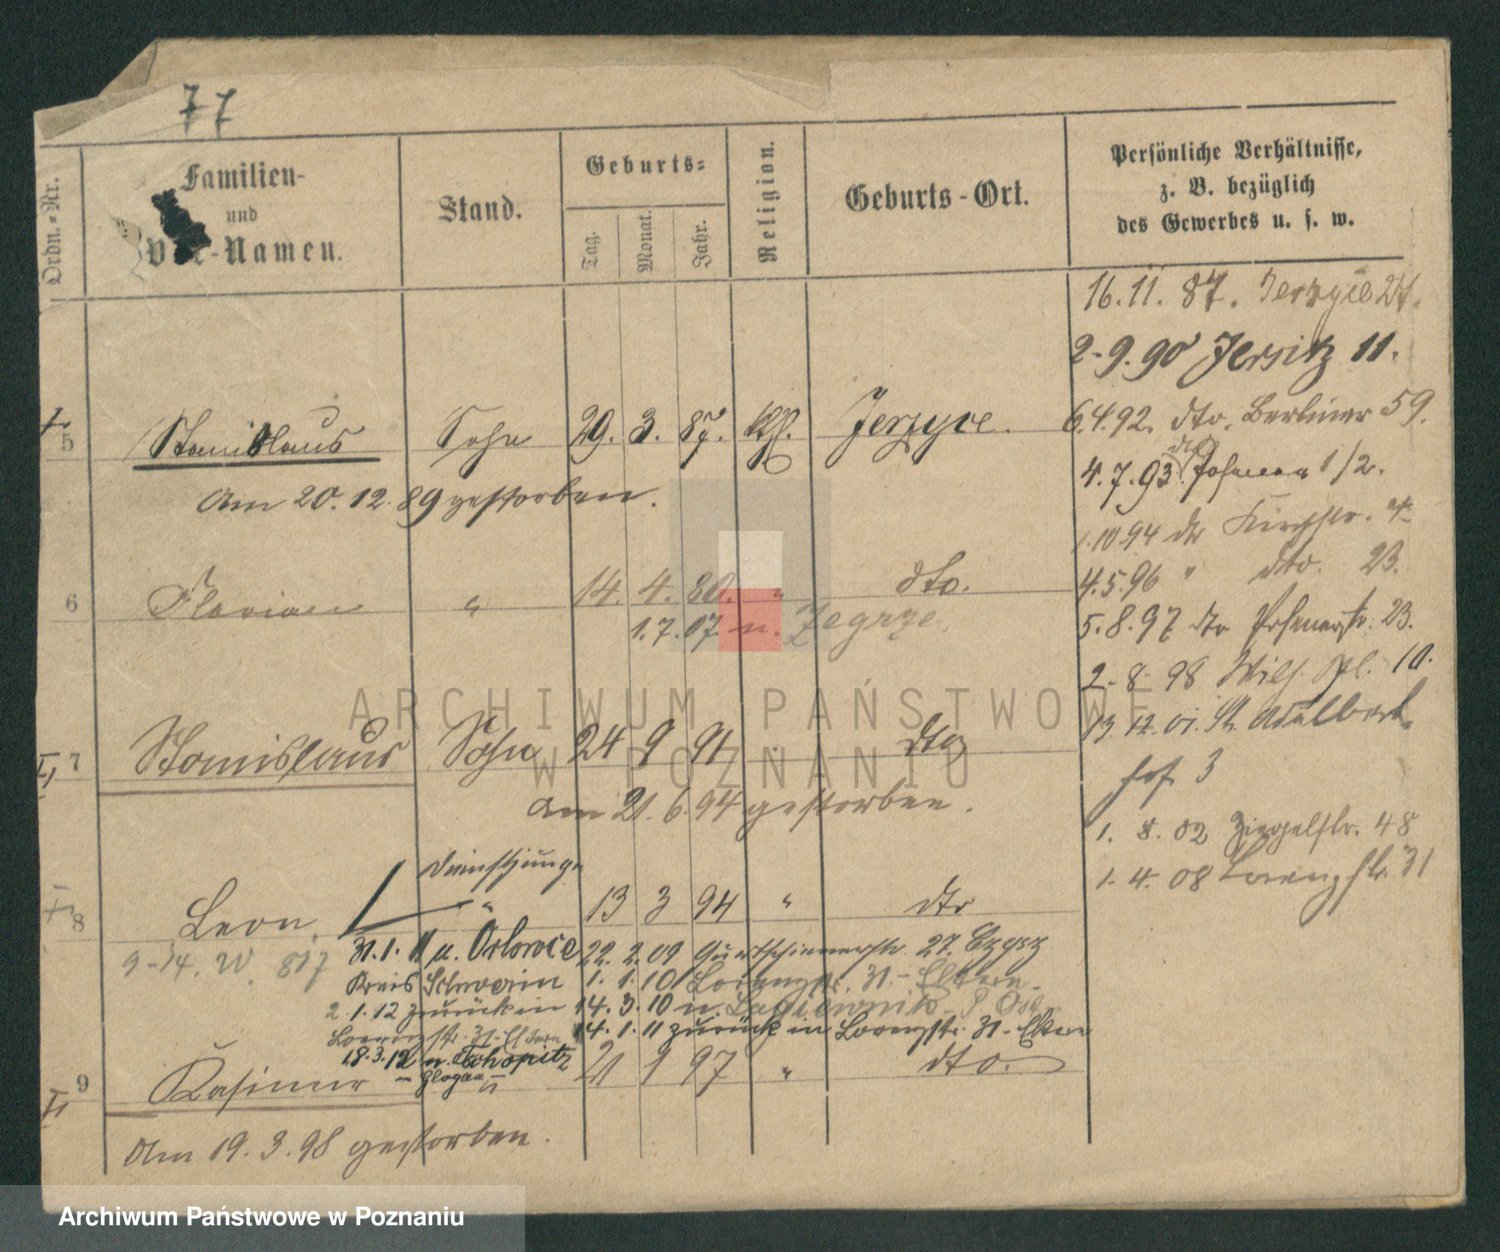 77
Ordn.-Nr.
Familien-
und
Vor-Namen.
Stand.
Geburts-
Tag.
Monat.
Jahr.
Religion.
Geburts-Ort.
Persönliche Verhältnisse,
z. B. bezüglich
des Gewerbes u. s. w.
16.11. 87. Jerzyce 27.
2-9.90 Jersitz 11.
6.4.92. dto. Berliner 59.
4.7.93. dto Posener 1/2.
1.10 94 dto Kirchstr. 4
4.5.96 " dto. 23.
5.8.97 dto Posenerstr. 23.
2-8-98 Wilh. Pl. 10.
13.12.01. St. Adalbert
hof 3
1. 8. 02 Ziegelstr. 48
1. 4. 08 Lorenzstr. 31
5 Stanislaus Sohn 29. 3. 87. Kth. Jerzyce.
Am 20.12.89 gestorben.
6 Florian " 14. 4. 80. " dto.
1.7.07. n. Zegrze.
7 Stanislaus Sohn 24 9 91 dto
am 21.6.94 gestorben.
Dienstjunge
8 Leon. " 13 3 94 " dto
9-14. W. 817
31.1.11 n. Orlowce 22. 2.09 Gurtschinerstr. 27.
Kreis Schwerin 1. 1. 10 Lorenzstr. 31.- Eltern
2.1.12 zurück in 14. 3.10 n.
Lorenzstr. 31-Eltern 14. 1. 11 zurück in Lorenzstr. 31- Eltern
18.3.12 n.
- Glogau
9 Kasimir 21 1 97 " dto.
Am 19.3.98 gestorben.
ARCHIWUM PAŃSTWOWE
W POZNANIU
Archiwum Państwowe w Poznaniu